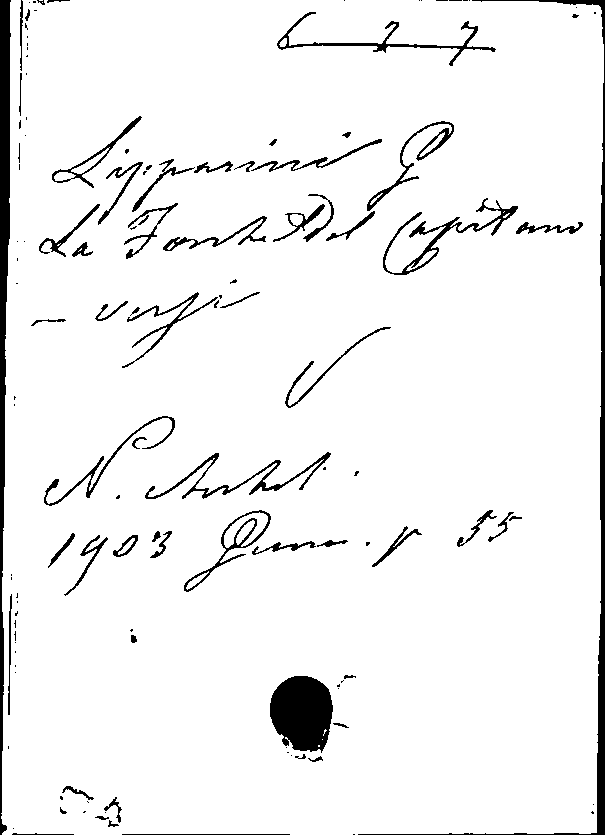 6 2 7
Lipparini G
La Fonte del Capitano
- versi
N. Antol.
1903 Genn. p 55